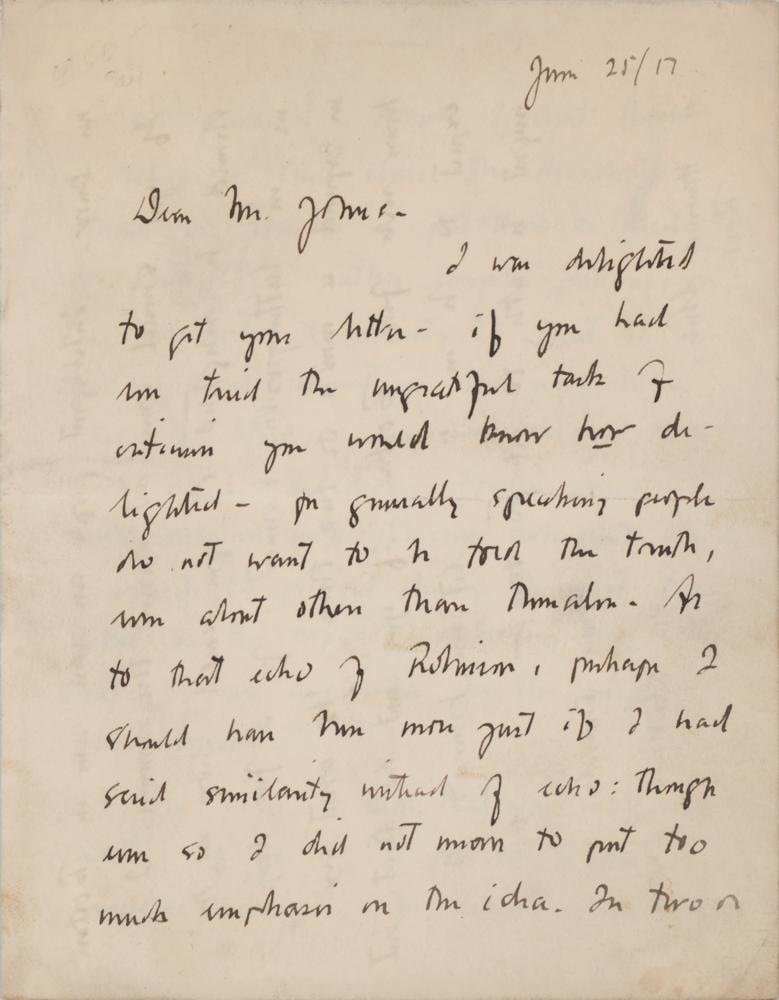 June 25/17
Dear Mr. Johns -
I was delighted
to get your letter - if you had
ever tried the ungrateful task of
criticism you would know how de-
lighted - for generally speaking people
do not want to be told the truth,
even about others than themselves. As
to that echo of Robinson, perhaps I
should have been more just if I had
said similarity instead of echo: though
even so I did not mean to put too
much emphasis on the idea. In two or